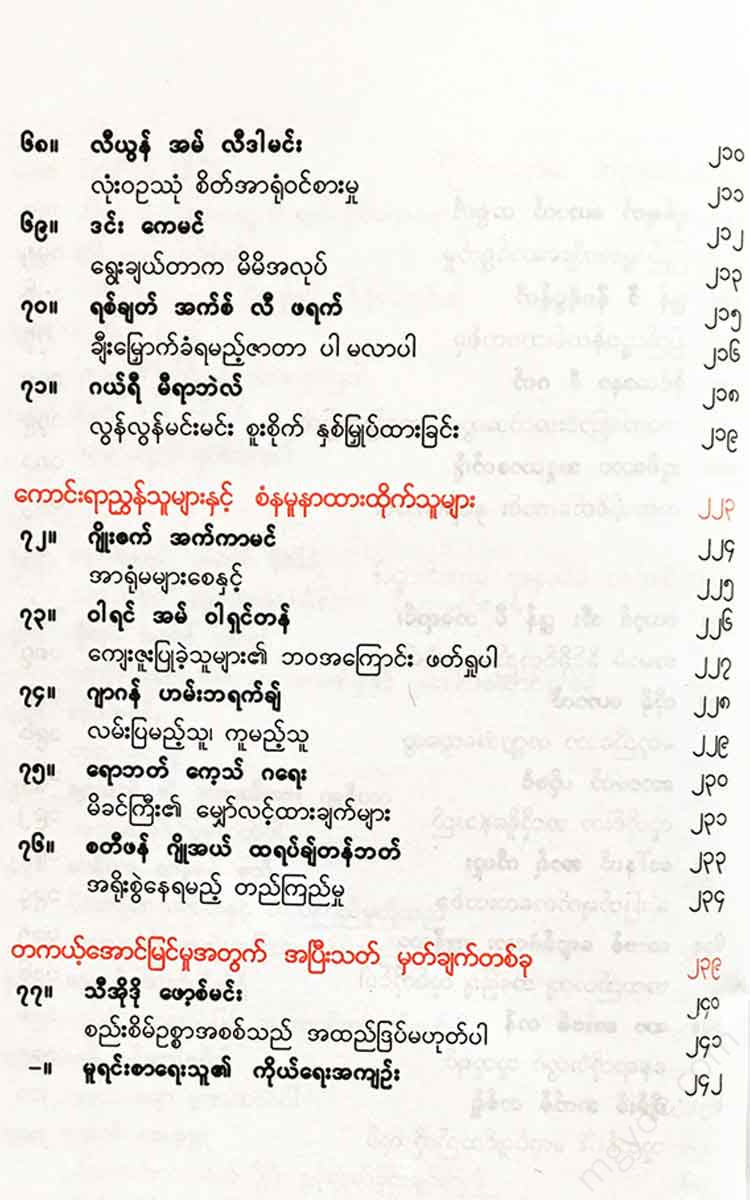 ၆၈။ လီယွန် အမ် လီဒါမင်း ၂၁၀
လုံးဝဥဿုံ စိတ်အာရုံဝင်စားမှု ၂၁၁
၆၉။ ဒင်း ကေမင် ၂၁၂
ရွေးချယ်တာက မိမိအလုပ် ၂၁၃
၇၀။ ရစ်ချတ် အက်စ် လီ ဖရက် ၂၁၅
ချီးမြှောက်ခံရမည့်ဇာတာ ပါ မလာပါ ၂၁၆
၇၁။ ဂယ်ရီ မီရာဘဲလ် ၂၁၈
လွန်လွန်မင်းမင်း စူးစိုက် နှစ်မြှုပ်ထားခြင်း ၂၁၉
ကောင်းရာညွှန်သူများနှင့် စံနမူနာထားထိုက်သူများ ၂၂၃
၇၂။ ဂျိုးဇက် အက်ကာမင် ၂၂၄
အာရုံမများစေနှင့် ၂၂၅
၇၃။ ဝါရင် အမ် ဝါရှင်တန် ၂၂၆
ကျေးဇူးပြုခဲ့သူများ၏ ဘဝအကြောင်း ဖတ်ရှုပါ ၂၂၇
၇၄။ ဂျာဂန် ဟမ်းဘရက်ချ် ၂၂၈
လမ်းပြမည့်သူ၊ ကူမည့်သူ ၂၂၉
၇၅။ ရောဘတ် ကေ့သ် ဂရေး ၂၃၀
မိခင်ကြီး၏ မျှော်လင့်ထားချက်များ ၂၃၁
၇၆။ စတီဖန် ဂျိုအယ် ထရပ်ချ်တန်ဘတ် ၂၃၃
အရိုးစွဲနေရမည့် တည်ကြည်မှု ၂၃၄
တကယ့်အောင်မြင်မှုအတွက် အပြီးသတ် မှတ်ချက်တစ်ခု ၂၃၉
၇၇။ သီအိုဒို ဖော့စ်မင်း ၂၄၀
စည်းစိမ်ဥစ္စာအစစ်သည် အထည်ဒြပ်မဟုတ်ပါ ၂၄၁
-။ မူရင်းစာရေးသူ၏ ကိုယ်ရေးအကျဉ်း ၂၄၂